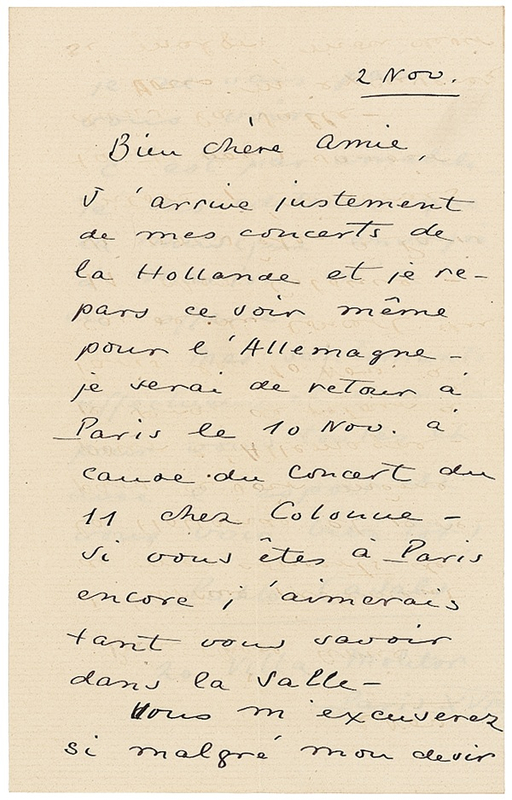 2 Nov.
Bien chère Amie,
J'arrive justement
de mes concerts de
la Hollande et je re-
pars ce soir même
pour l'Allemagne -
je serai de retour à
Paris le 10 Nov. à
cause du concert du
11 chez Colonne -
si vous êtes à Paris
encore j'aimerais
tant vous savoir
dans la salle -
Vous m'excuserez
si malgré mon desir